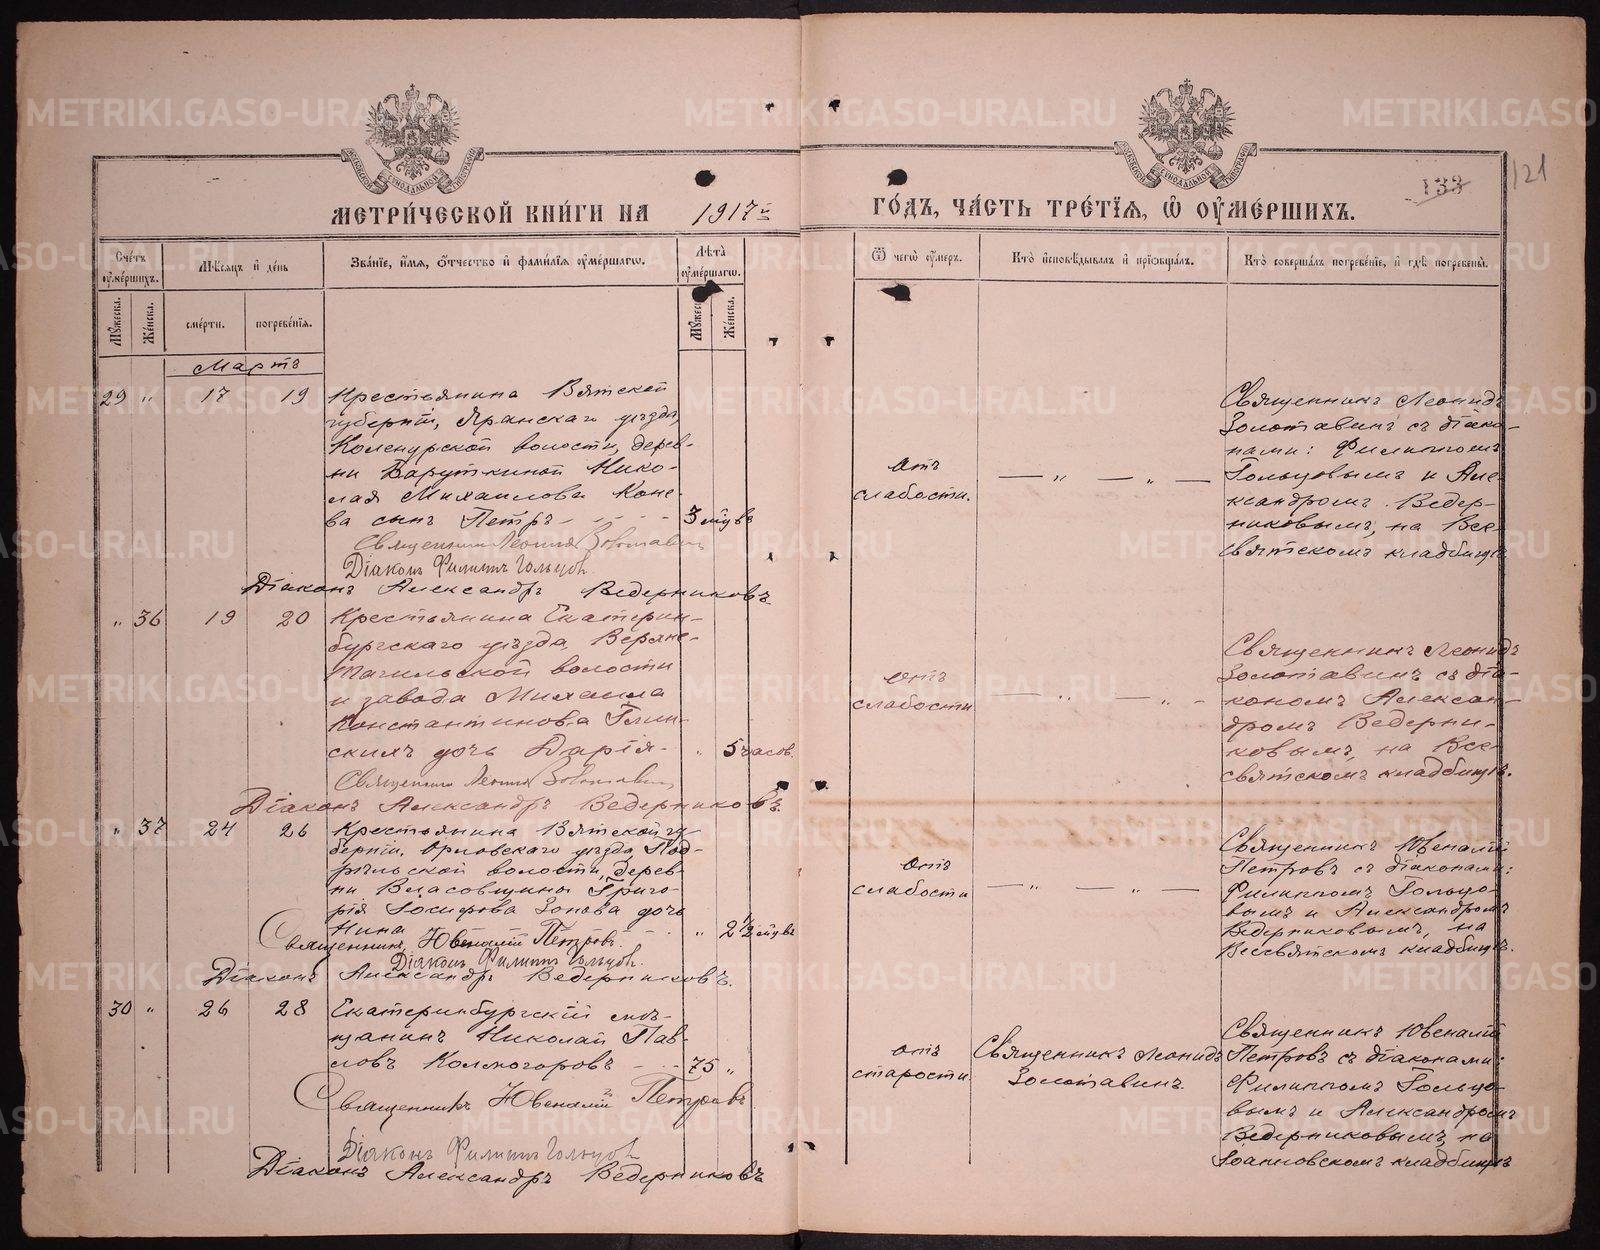 МЕТРИ́ЧЕСКОЙ КНИ́ГИ НА 1917 г.
ГО́ДЪ, ЧА́СТЬ ТРЕ́ТІЯ, Ѡ ОУ҆МЕ́РШИХЪ.
133
121
Сче́тъ оу҆ме́ршихъ.
Мѣ́сяцъ и҆ де́нь
Зва́нїе, и҆́мя, ѻ҆́тчество и҆ фами́лїя оу҆ме́ршагѡ.
Лѣ́та оу҆ме́ршагѡ.
Ѿ чегѡ̀ оу҆́меръ.
Кто̀ и҆сповѣ́дывалъ и҆ прїѡбща́лъ.
Кто̀ соверша́лъ погребе́нїе, и҆ гдѣ̀ погребены̀.
Му́жеска.
Же́нска.
сме́рти.
погребе́нїя.
Му́жеск
Же́нска.
Мартъ
29 " 17 19
Крестьянина Вятской
губерніи, Яранскаго уѣзда,
волости, дерев-
ни Барушкиной Нико-
лая Михаилова Коне-
ва сынъ Петръ - 3 мѣсяц.
Священникъ Леонидъ Золотавинъ
Діаконъ Филиппъ Гольцовъ.
Діаконъ Александръ Ведерниковъ
отъ
слабости.
— " — " —
Священникъ Леонидъ
Золотавинъ съ діако-
нами: Филиппомъ
Гольцовымъ и Але-
ксандромъ Ведер-
никовымъ, на Все-
святскомъ кладбищѣ
" 36 19 20
Крестьянина Екатерин-
бургскаго уѣзда, Верхне-
Тагильской волости
и завода Михаила
Константинова Глин-
скихъ дочь Дарія - " 5 часов.
Священникъ Леонидъ Золотавинъ
Діаконъ Александръ Ведерниковъ.
отъ
слабости
— " — " -
Священникъ Леонидъ
Золотавинъ съ діа-
кономъ Алексан-
дромъ Ведерни-
ковымъ, на Все-
святскомъ кладбищѣ.
" 37 24 26
Крестьянина Вятской гу-
берніи, Орловскаго уѣзда, Под-
рѣльской волости, дерев-
ни Власовщины Григо-
рія Іосифова Зонова дочь
Нина - - - " 2 1/2 мѣсяц.
Священникъ Ювеналій Петровъ.
Діаконъ Филиппъ Гольцовъ.
Діаконъ Александръ Ведерниковъ.
отъ
слабости
— " — " —
Священникъ Ювеналій
Петровъ съ діаконами:
Филиппомъ Гольцо-
вымъ и Александромъ
Ведерниковымъ, на
Всесвятскомъ кладбищѣ.
30 " 26 28
Екатеринбургскій мѣ-
щанинъ Николай Пав-
ловъ Колмогоровъ - - 75 "
Священникъ Ювеналій Петровъ
Діаконъ Филиппъ Гольцовъ
Діаконъ Александръ Ведерниковъ
отъ
старости
Священникъ Леонидъ
Золотавинъ.
Священникъ Ювеналій
Петровъ съ діаконами:
Филиппомъ Гольцо-
вымъ и Александромъ
Ведерниковымъ, на
Іоанновскомъ кладбищѣ
METRIKI.GASO-URAL.RU